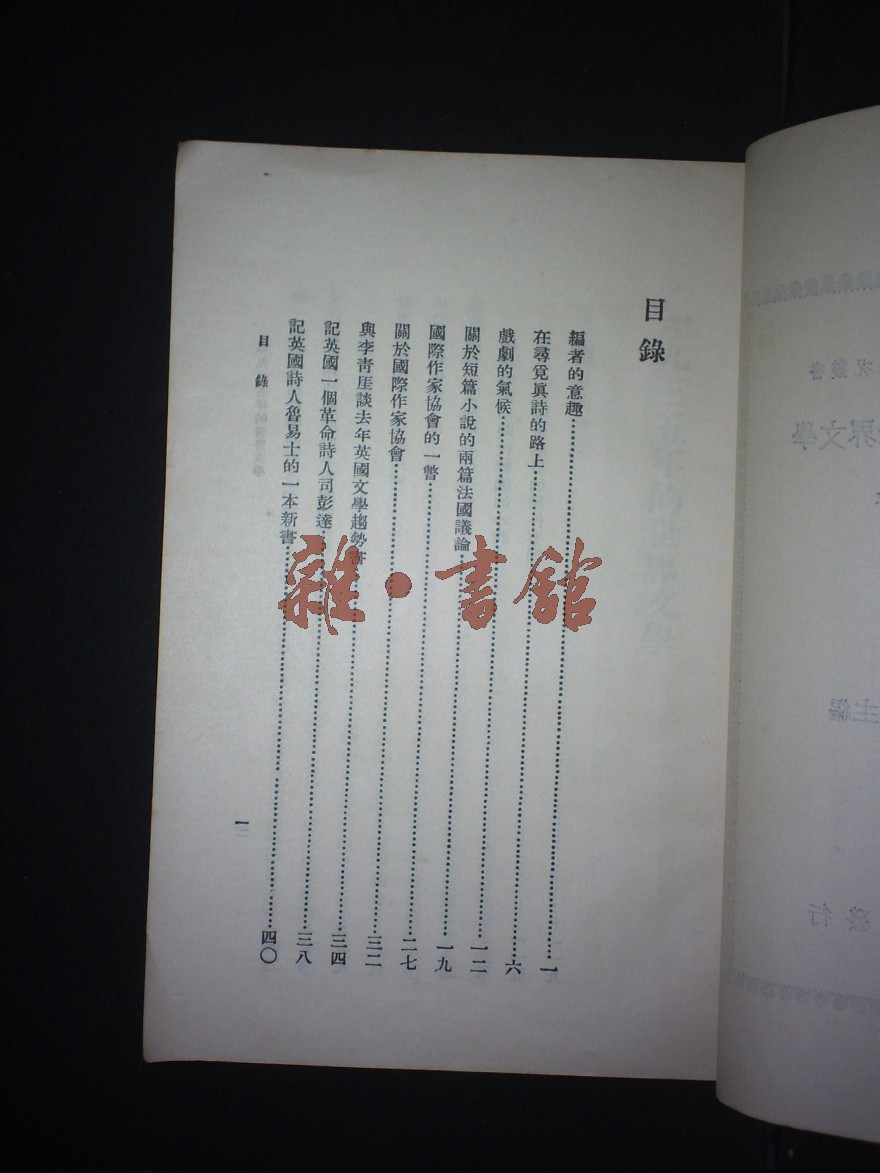 目錄
編者的意趣……一
在尋覓眞詩的路上……六
戲劇的氣候……一二
關於短篇小說的兩篇法國議論……一九
國際作家協會的一瞥……二七
關於國際作家協會……三二
與李靑厓談去年英國文學趨勢書……三四
記英國一個革命詩人司彭達……三八
記英國詩人魯易士的一本新書……四〇
目錄
一
雜·書館
叢書
界文學
主編
發行